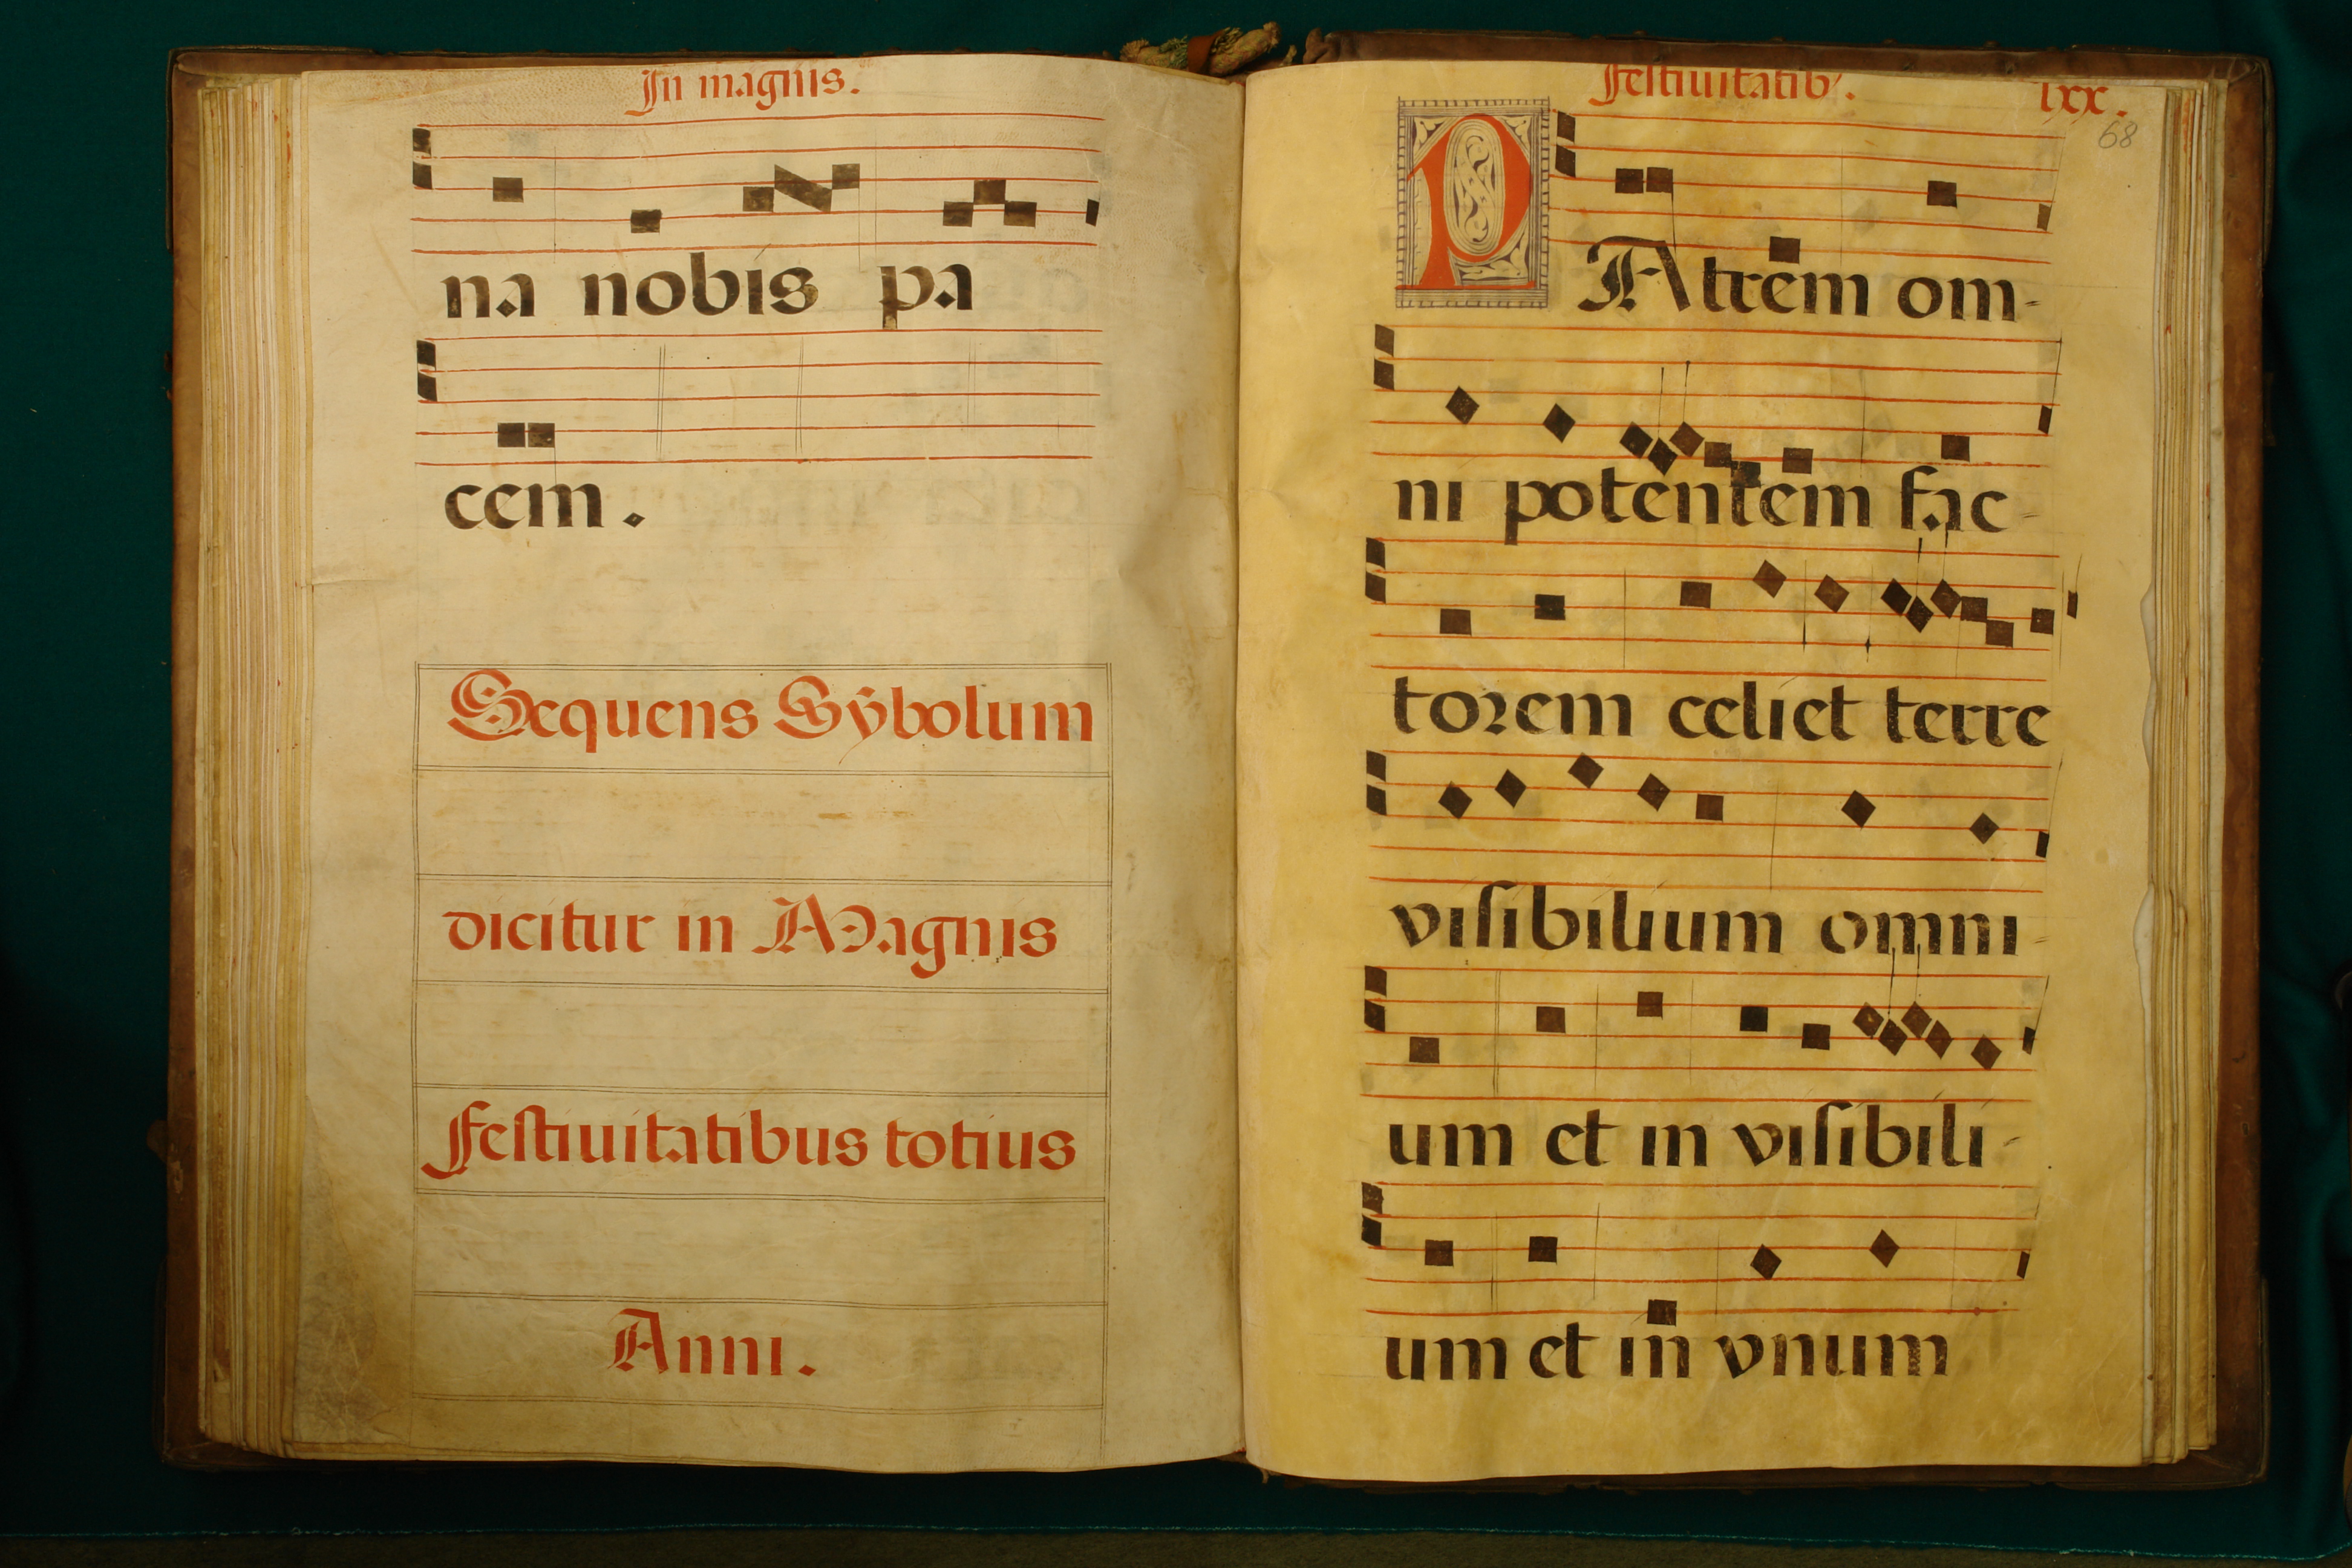 In magnis.
na nobis pa
cem.
Sequens Sỹbolum
dicitur in Magnis
Festiuitatibus totius
Anni.
Festiuitatib'. lxx.
68
PAtrem om-
ni potentem fac-
torem celi et terre
visibilium omni-
um et in visibili-
um et in vnum